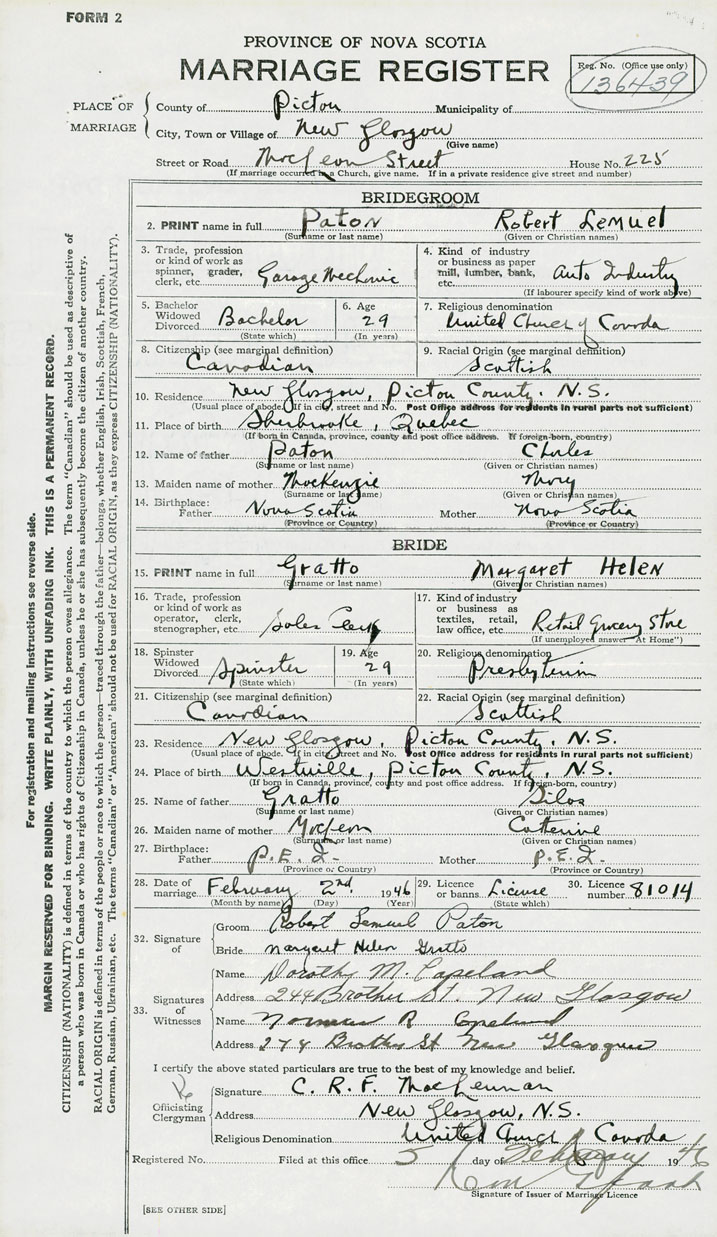 FORM 2
PROVINCE OF NOVA SCOTIA
MARRIAGE REGISTER
Reg. No. (Office use only)
136439
PLACE OF MARRIAGE
County of Pictou Municipality of
City, Town or Village of New Glasgow
(Give name)
Street or Road MacLean Street House No. 225
(If marriage occurred in a Church, give name. If in a private residence give street and number)
BRIDEGROOM
2. PRINT name in full Paton Robert Lemuel
(Surname or last name) (Given or Christian names)
3. Trade, profession or kind of work as spinner, grader, clerk, etc. Garage Mechanic
4. Kind of industry or business as paper mill, lumber, bank, etc. Auto Industry
(If labourer specify kind of work above)
5. Bachelor Widowed Divorced Bachelor (State which)
6. Age 29 (In years)
7. Religious denomination United Church of Canada
8. Citizenship (see marginal definition) Canadian
9. Racial Origin (see marginal definition) Scottish
10. Residence New Glasgow, Pictou County, N.S.
(Usual place of abode. If in city, street and No. Post Office address for residents in rural parts not sufficient)
11. Place of birth Sherbrooke, Quebec
(If born in Canada, province, county and post office address. If foreign-born, country)
12. Name of father Paton Charles
(Surname or last name) (Given or Christian names)
13. Maiden name of mother MacKenzie Mary
(Surname or last name) (Given or Christian names)
14. Birthplace: Father Nova Scotia Mother Nova Scotia
(Province or Country) (Province or Country)
BRIDE
15. PRINT name in full Gratto Margaret Helen
(Surname or last name) (Given or Christian names)
16. Trade, profession or kind of work as operator, clerk, stenographer, etc. Sales Clerk
17. Kind of industry or business as textiles, retail, law office, etc. Retail Grocery Store
(If unemployed answer "At Home")
18. Spinster Widowed Divorced Spinster (State which)
19. Age 29 (In years)
20. Religious denomination Presbyterian
21. Citizenship (see marginal definition) Canadian
22. Racial Origin (see marginal definition) Scottish
23. Residence New Glasgow, Pictou County, N.S.
(Usual place of abode. If in city, street and No. Post Office address for residents in rural parts not sufficient)
24. Place of birth Westville, Pictou County, N.S.
(If born in Canada, province, county and post office address. If foreign-born, country)
25. Name of father Gratto Silas
(Surname or last name) (Given or Christian names)
26. Maiden name of mother MacLean Catherine
(Surname or last name) (Given or Christian names)
27. Birthplace: Father P.E.I. Mother P.E.I.
(Province or Country) (Province or Country)
28. Date of marriage February 2nd 1946
(Month by name) (Day) (Year)
29. Licence or banns License (State which)
30. Licence number 81014
32. Signature of
Groom Robert Lemuel Paton
Bride Margaret Helen Gratto
33. Signatures of Witnesses
Name Dorothy M. Copeland
Address 244 Brother St. New Glasgow
Name Norman R Copeland
Address 274 Brother St New Glasgow
I certify the above stated particulars are true to the best of my knowledge and belief.
Officiating Clergyman
Signature C. R. F. MacLennan
Address New Glasgow, N.S.
Religious Denomination United Church Canada
Registered No. Filed at this office 5 day of February 1946
Signature of Issuer of Marriage Licence
[SEE OTHER SIDE]
For registration and mailing instructions see reverse side.
MARGIN RESERVED FOR BINDING. WRITE PLAINLY, WITH UNFADING INK. THIS IS A PERMANENT RECORD.
CITIZENSHIP (NATIONALITY) is defined in terms of the country to which the person owes allegiance. The term "Canadian" should be used as descriptive of
a person who was born in Canada or who has rights of Citizenship in Canada, unless he or she has subsequently become the citizen of another country.
RACIAL ORIGIN is defined in terms of the people or race to which the person—traced through the father—belongs, whether English, Irish, Scottish, French,
German, Russian, Ukrainian, etc. The terms "Canadian" or "American" should not be used for RACIAL ORIGIN, as they express CITIZENSHIP (NATIONALITY).